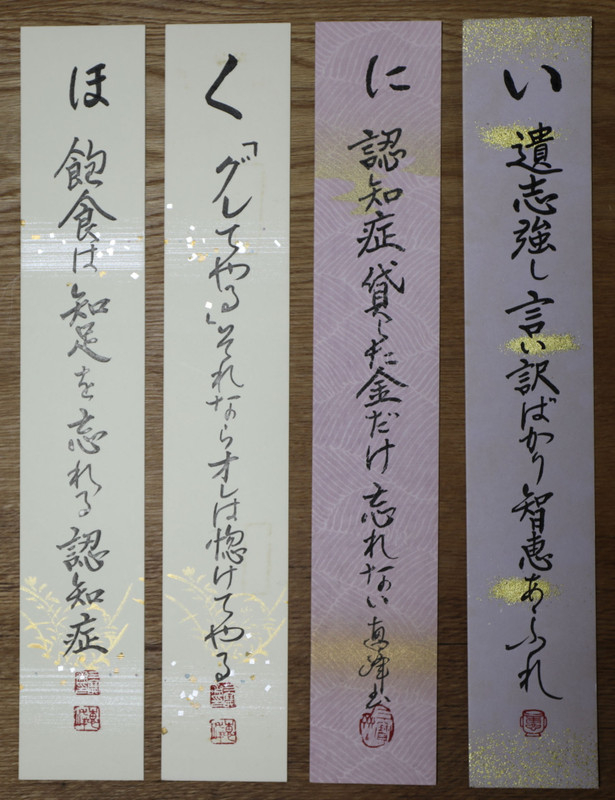 い
遺志強し言い訳ばかり智恵あふれ
に
認知症貸した金だけ忘れない
く
「グレてやる」それならオレは惚けてやる
ほ
飽食は知足を忘れる認知症